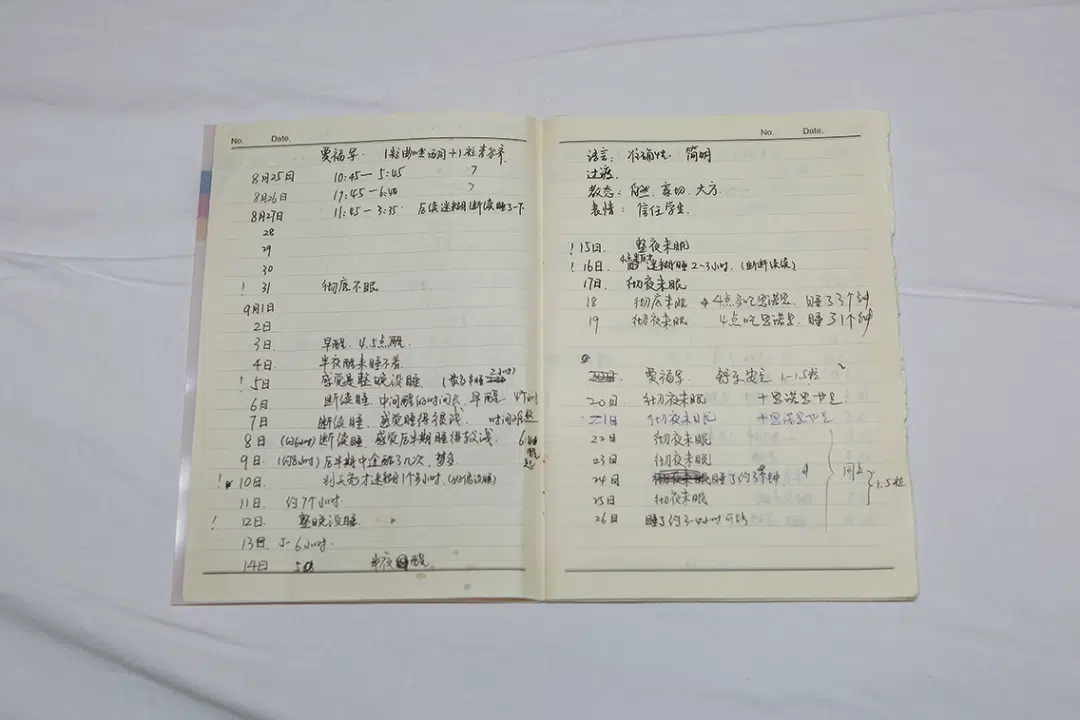 No. Date.
贾福军. 1粒曲唑酮+1粒
8月25日 10:45—5:45 ?
8月26日 :45—6:40 ?
8月27日 11:45—3:35. 后续迷糊断续睡了一下
28
29
30
! 31 彻底不眠
9月1日
2日
3日 早醒. 4.5点醒.
4日 半夜醒来睡不着
! 5日 感觉是整晚没睡. 2小时)
6日 断续睡. 中间醒的时间长. 早醒. 4个时
7日 断续睡. 感觉睡得很浅.
8日 (约6小时)断续睡 感觉后半期睡得较浅. 6
9日. (约8小时)后半期中途醒了几次, 梦多
! 10日. 到天亮才迷糊1个多小时.
11日. 约7个小时.
! 12日. 整晚没睡.
13日. 5-6小时.
14日 5 半夜醒.
No. Date.
语言: 准确性. 简明
过渡.
教态: 自然. 亲切. 大方.
表情: 信任学生.
! 15日. 整夜未眠
! 16日. 迷糊睡2~3小时. (断断续续)
17日. 彻夜未眠
18 彻底未眠 4点多吃思诺思. 睡了3个钟
19 彻夜未眠 4点吃思诺思. 睡了1个钟
贾福军. 舒乐安定 1-1.5粒
20日. 彻夜未眠 +思诺思
21日. 彻夜未眠 +思诺思
22日 彻夜未眠
23日 彻夜未眠
24日 睡了约3个钟 同上 1.5粒
25日 彻夜未眠
26日 睡了约3-4小时